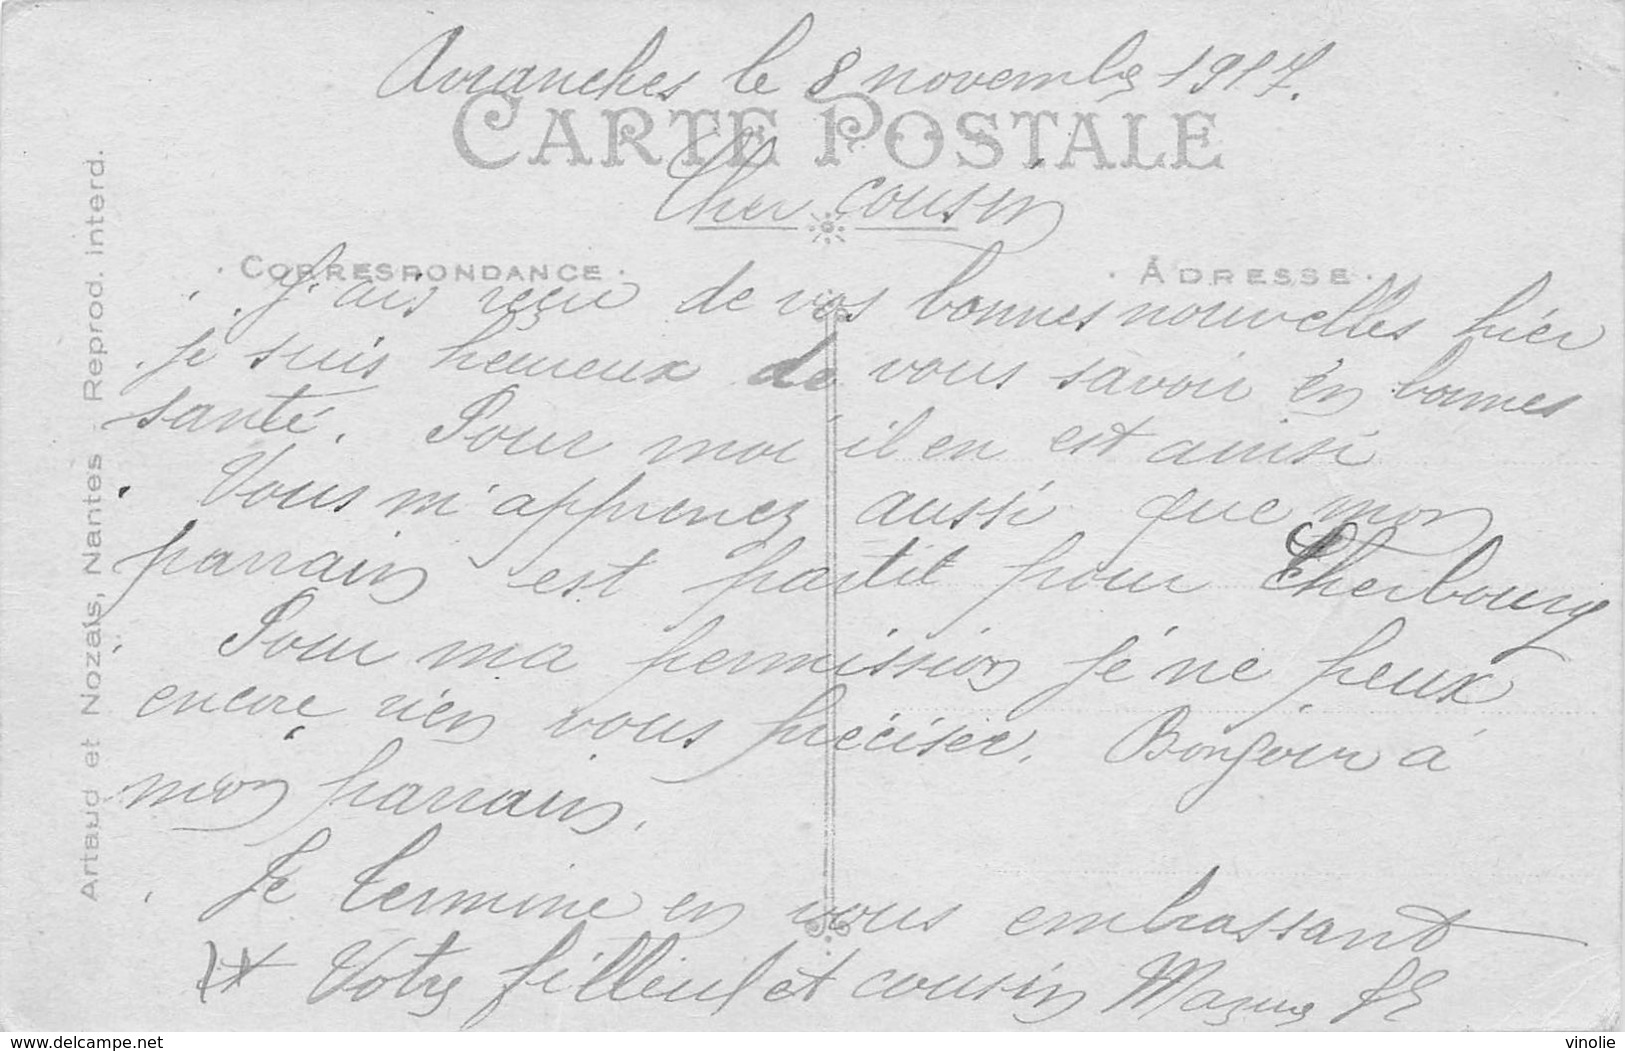 Avranches le 8 novembre 1917.
CARTE POSTALE
Cher cousin
CORRESPONDANCE
ADRESSE
J'ais reçu de vos bonnes nouvelles hier
je suis heureux de vous savoir en bonnes
santé. Pour moi il en est ainsi
Vous m'apprenez aussi que mon
parrain est partit pour Cherbourg
Pour ma permission je ne peux
encore rien vous préciser. Bonjour à
mon parrain.
Je termine en vous embrassant
Votre filleul et cousin
Artaud et Nozais, Nantes - Reprod. interd.
www.delcampe.net
vinolie